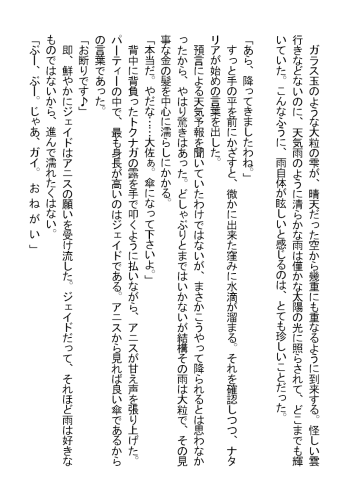 ガラス玉のような大粒の雫が、晴天だった空から幾重にも重なるように到来する。怪しい雲
行きなどないのに、天気雨のように清らかな雨は僅かな太陽の光に照らされて、どこまでも輝
いていた。こんなふうに、雨自体が眩しいと感じるのは、とても珍しいことだった。
「あら、降ってきましたわね。」
すっと手の平を前にかざすと、微かに出来た窪みに水滴が溜まる。それを確認しつつ、ナタ
リアが始めの言葉を出した。
預言による天気予報を聞いていたわけではないが、まさかこうやって降られるとは思わなか
ったから、やはり驚きはあった。どしゃぶりとまではいかないが結構その雨は大粒で、その見
事な金の髪を中心に濡らしにかかる。
「本当だ。やだな……大佐ぁ。傘になって下さいよ。」
背中に背負ったトクナガの露を手で叩くように払いながら、アニスが甘え声を張り上げた。
パーティーの中で、最も身長が高いのはジェイドである。アニスから見れば良い傘であるから
の言葉であった。
「お断りです♪」
即、鮮やかにジェイドはアニスの願いを受け流した。ジェイドだって、それほど雨は好きな
ものではないから、進んで濡れたくはない。
「ぶー、ぶー。じゃあ、ガイ。おねがい」